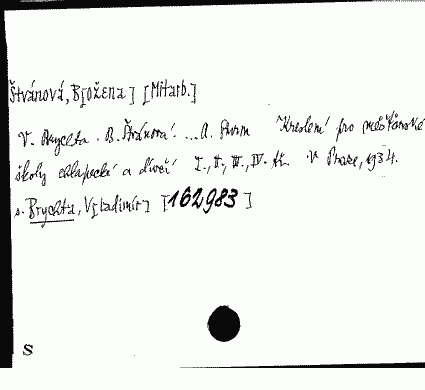 Štvánová, B[ožena] [Mitarb.]
V. Brychta. B. Štvánová. ... A. Sturm Kreslení pro měšťanské
školy chlapecké a dívčí I., II., III., IV. tř. V Praze, 1934.
s. Brychta, V[ladimír] [162983]
S